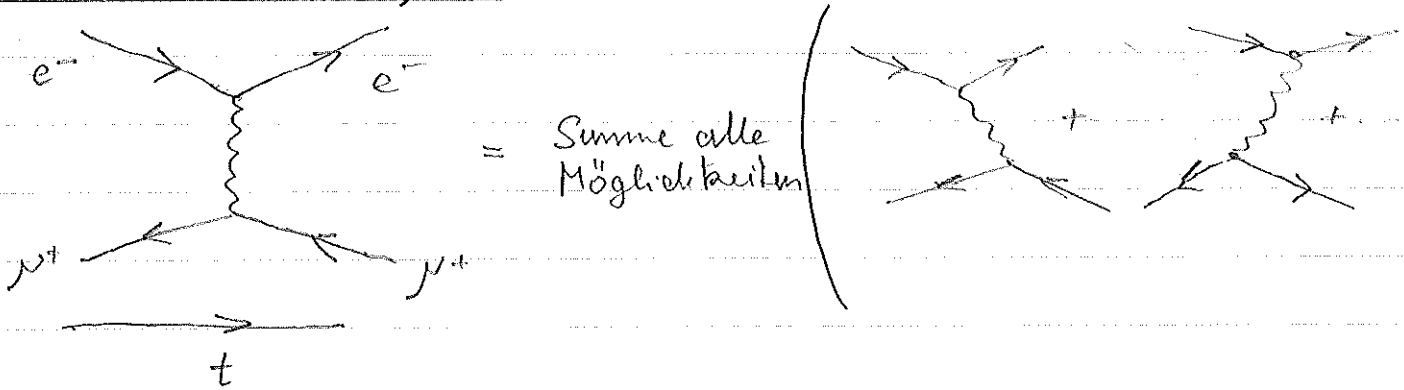 e⁻ e⁻
= Summe alle
Möglichkeiten ( + +
μ⁺ μ⁺
t